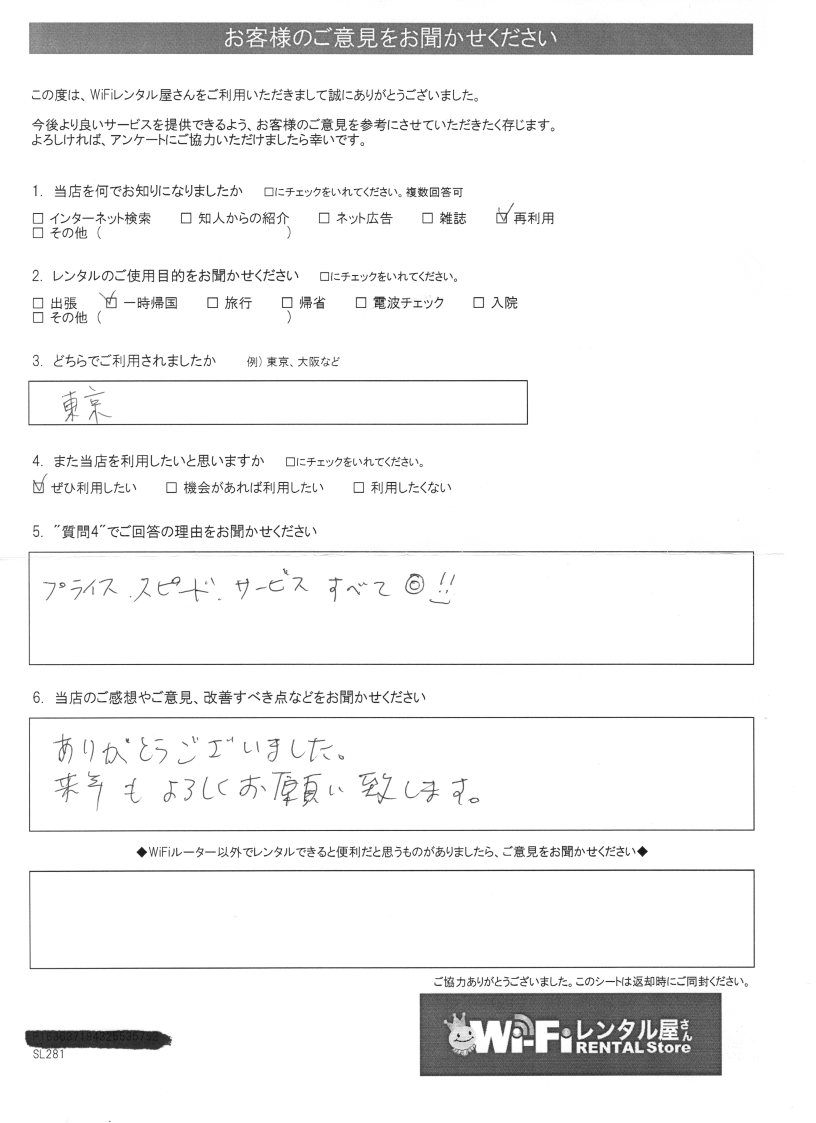 お客様のご意見をお聞かせください
この度は、WiFiレンタル屋さんをご利用いただきまして誠にありがとうございました。
今後より良いサービスを提供できるよう、お客様のご意見を参考にさせていただきたく存じます。
よろしければ、アンケートにご協力いただけましたら幸いです。
1. 当店を何でお知りになりましたか □にチェックをいれてください。複数回答可
□ インターネット検索 □ 知人からの紹介 □ ネット広告 □ 雑誌 ☑ 再利用
□ その他 ( )
2. レンタルのご使用目的をお聞かせください □にチェックをいれてください。
□ 出張 ☑ 一時帰国 □ 旅行 □ 帰省 □ 電波チェック □ 入院
□ その他 ( )
3. どちらでご利用されましたか 例) 東京、大阪など
東京
4. また当店を利用したいと思いますか □にチェックをいれてください。
☑ ぜひ利用したい □ 機会があれば利用したい □ 利用したくない
5. ″質問4″でご回答の理由をお聞かせください
プライス、スピード、サービス すべて ◎!!
6. 当店のご感想やご意見、改善すべき点などをお聞かせください
ありがとうございました。
来年もよろしくお願い致します。
◆WiFiルーター以外でレンタルできると便利だと思うものがありましたら、ご意見をお聞かせください◆
ご協力ありがとうございました。このシートは返却時にご同封ください。
Wi-Fiレンタル屋さん
RENTAL Store
SL281